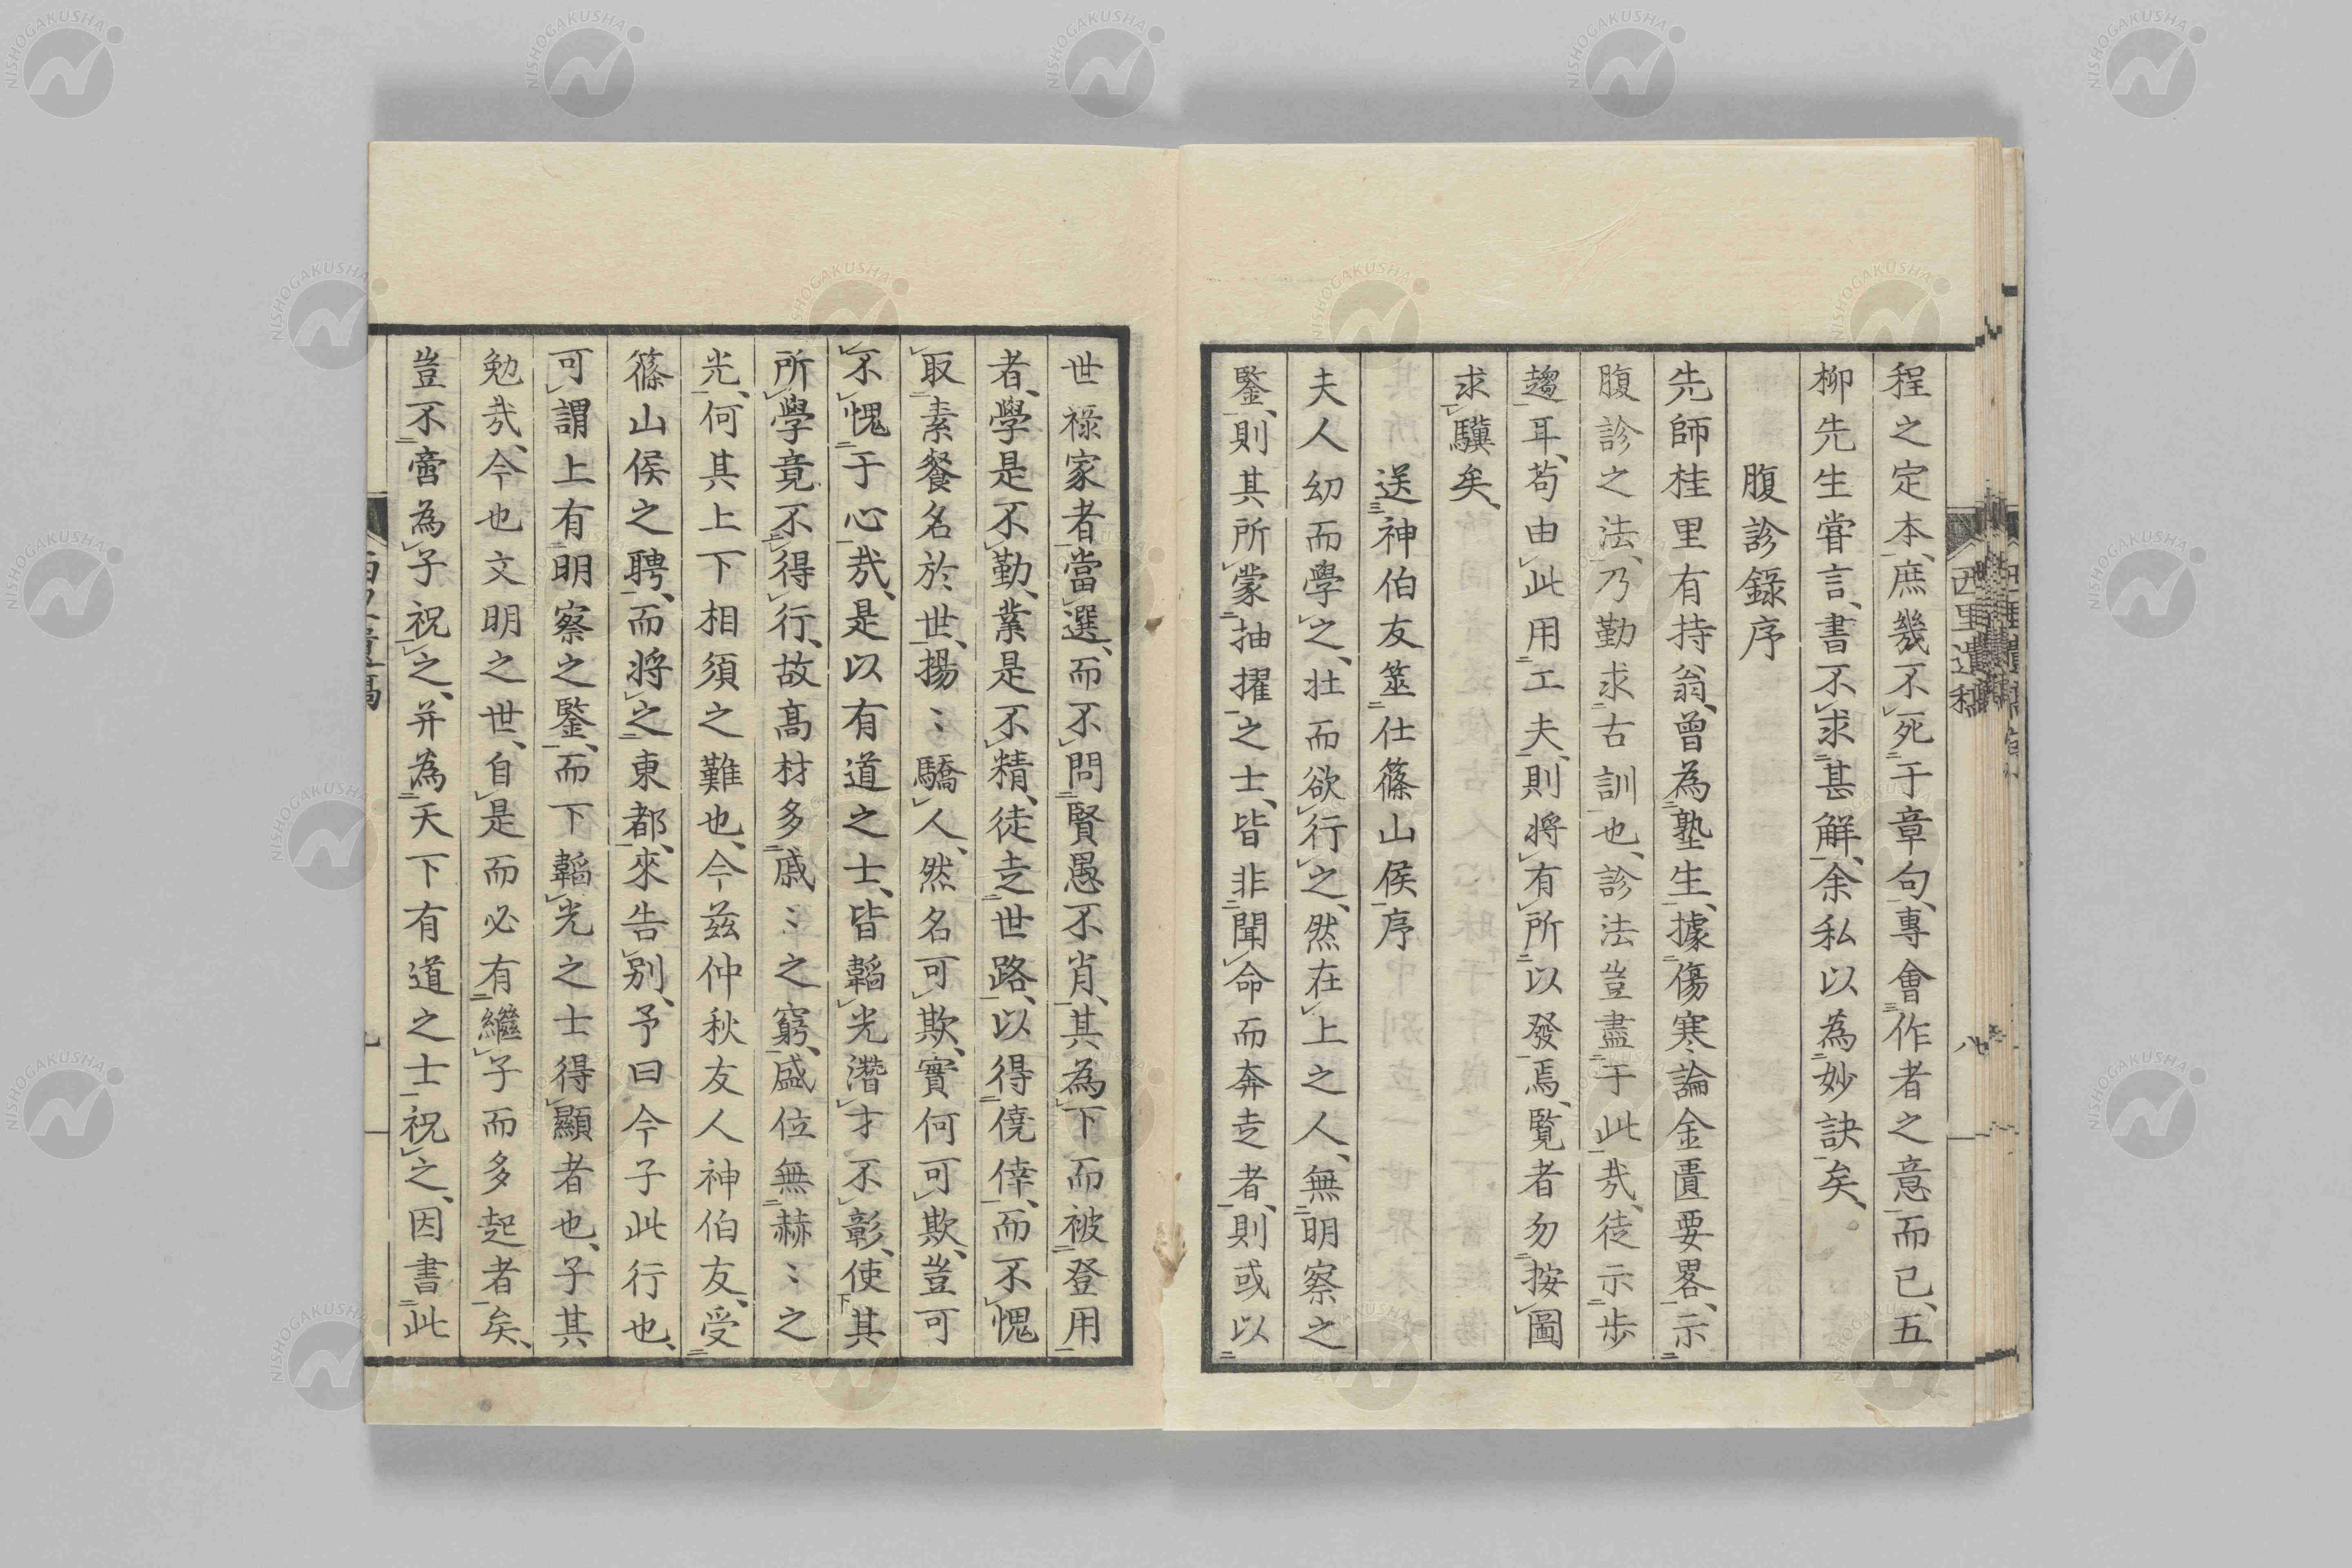 程之定本、庶幾不死于章句、專會作者之意而已、五
柳先生甞言、書不求甚解、余私以為妙訣矣、
腹診錄序
先師桂里有持翁、曾為塾生、據傷寒論金匱要畧、示
腹診之法、乃勤求古訓也、診法豈盡于此㢤、徒示步
趨耳、苟由此用工夫、則將有所以發焉、覽者勿按圖
求驥矣、
送神伯友筮仕篠山侯序
夫人幼而學之、壮而欲行之、然在上之人、無明察之
鑒、則其所蒙抽擢之士、皆非聞命而奔走者、則或以
西里遺稿
八
世祿家者當選、而不問賢愚不肖、其為下而被登用
者、學是不勤、業是不精、徒走世路、以得僥倖、而不愧
取素餐名於世、揚〻驕人、然名可欺、實何可欺、豈可
不愧于心㢤、是以有道之士、皆韜光潛才不彰、使其
所學竟不得行、故高材多戚〻之窮、盛位無赫〻之
光、何其上下相須之難也、今茲仲秋友人神伯友、受
篠山侯之聘、而將之東都、來告別、予曰今子此行也、
可謂上有明察之鑒、而下韜光之士得顯者也、子其
勉㢤、今也文明之世、自是而必有繼子而多起者矣、
豈不啻為子祝之、并為天下有道之士祝之、因書此